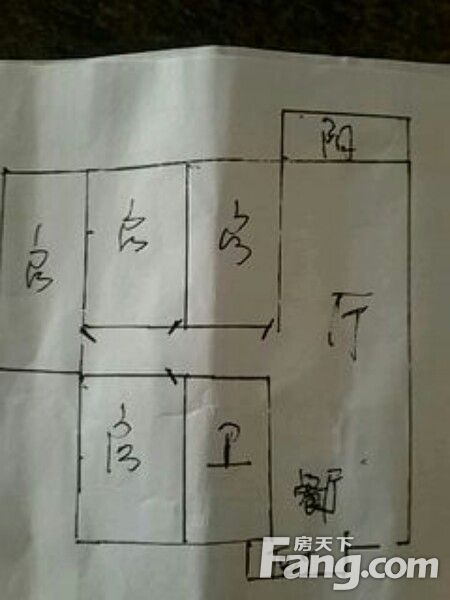 阳
房
房
房
厅
房
卫
餐厅
房天下
Fang.com